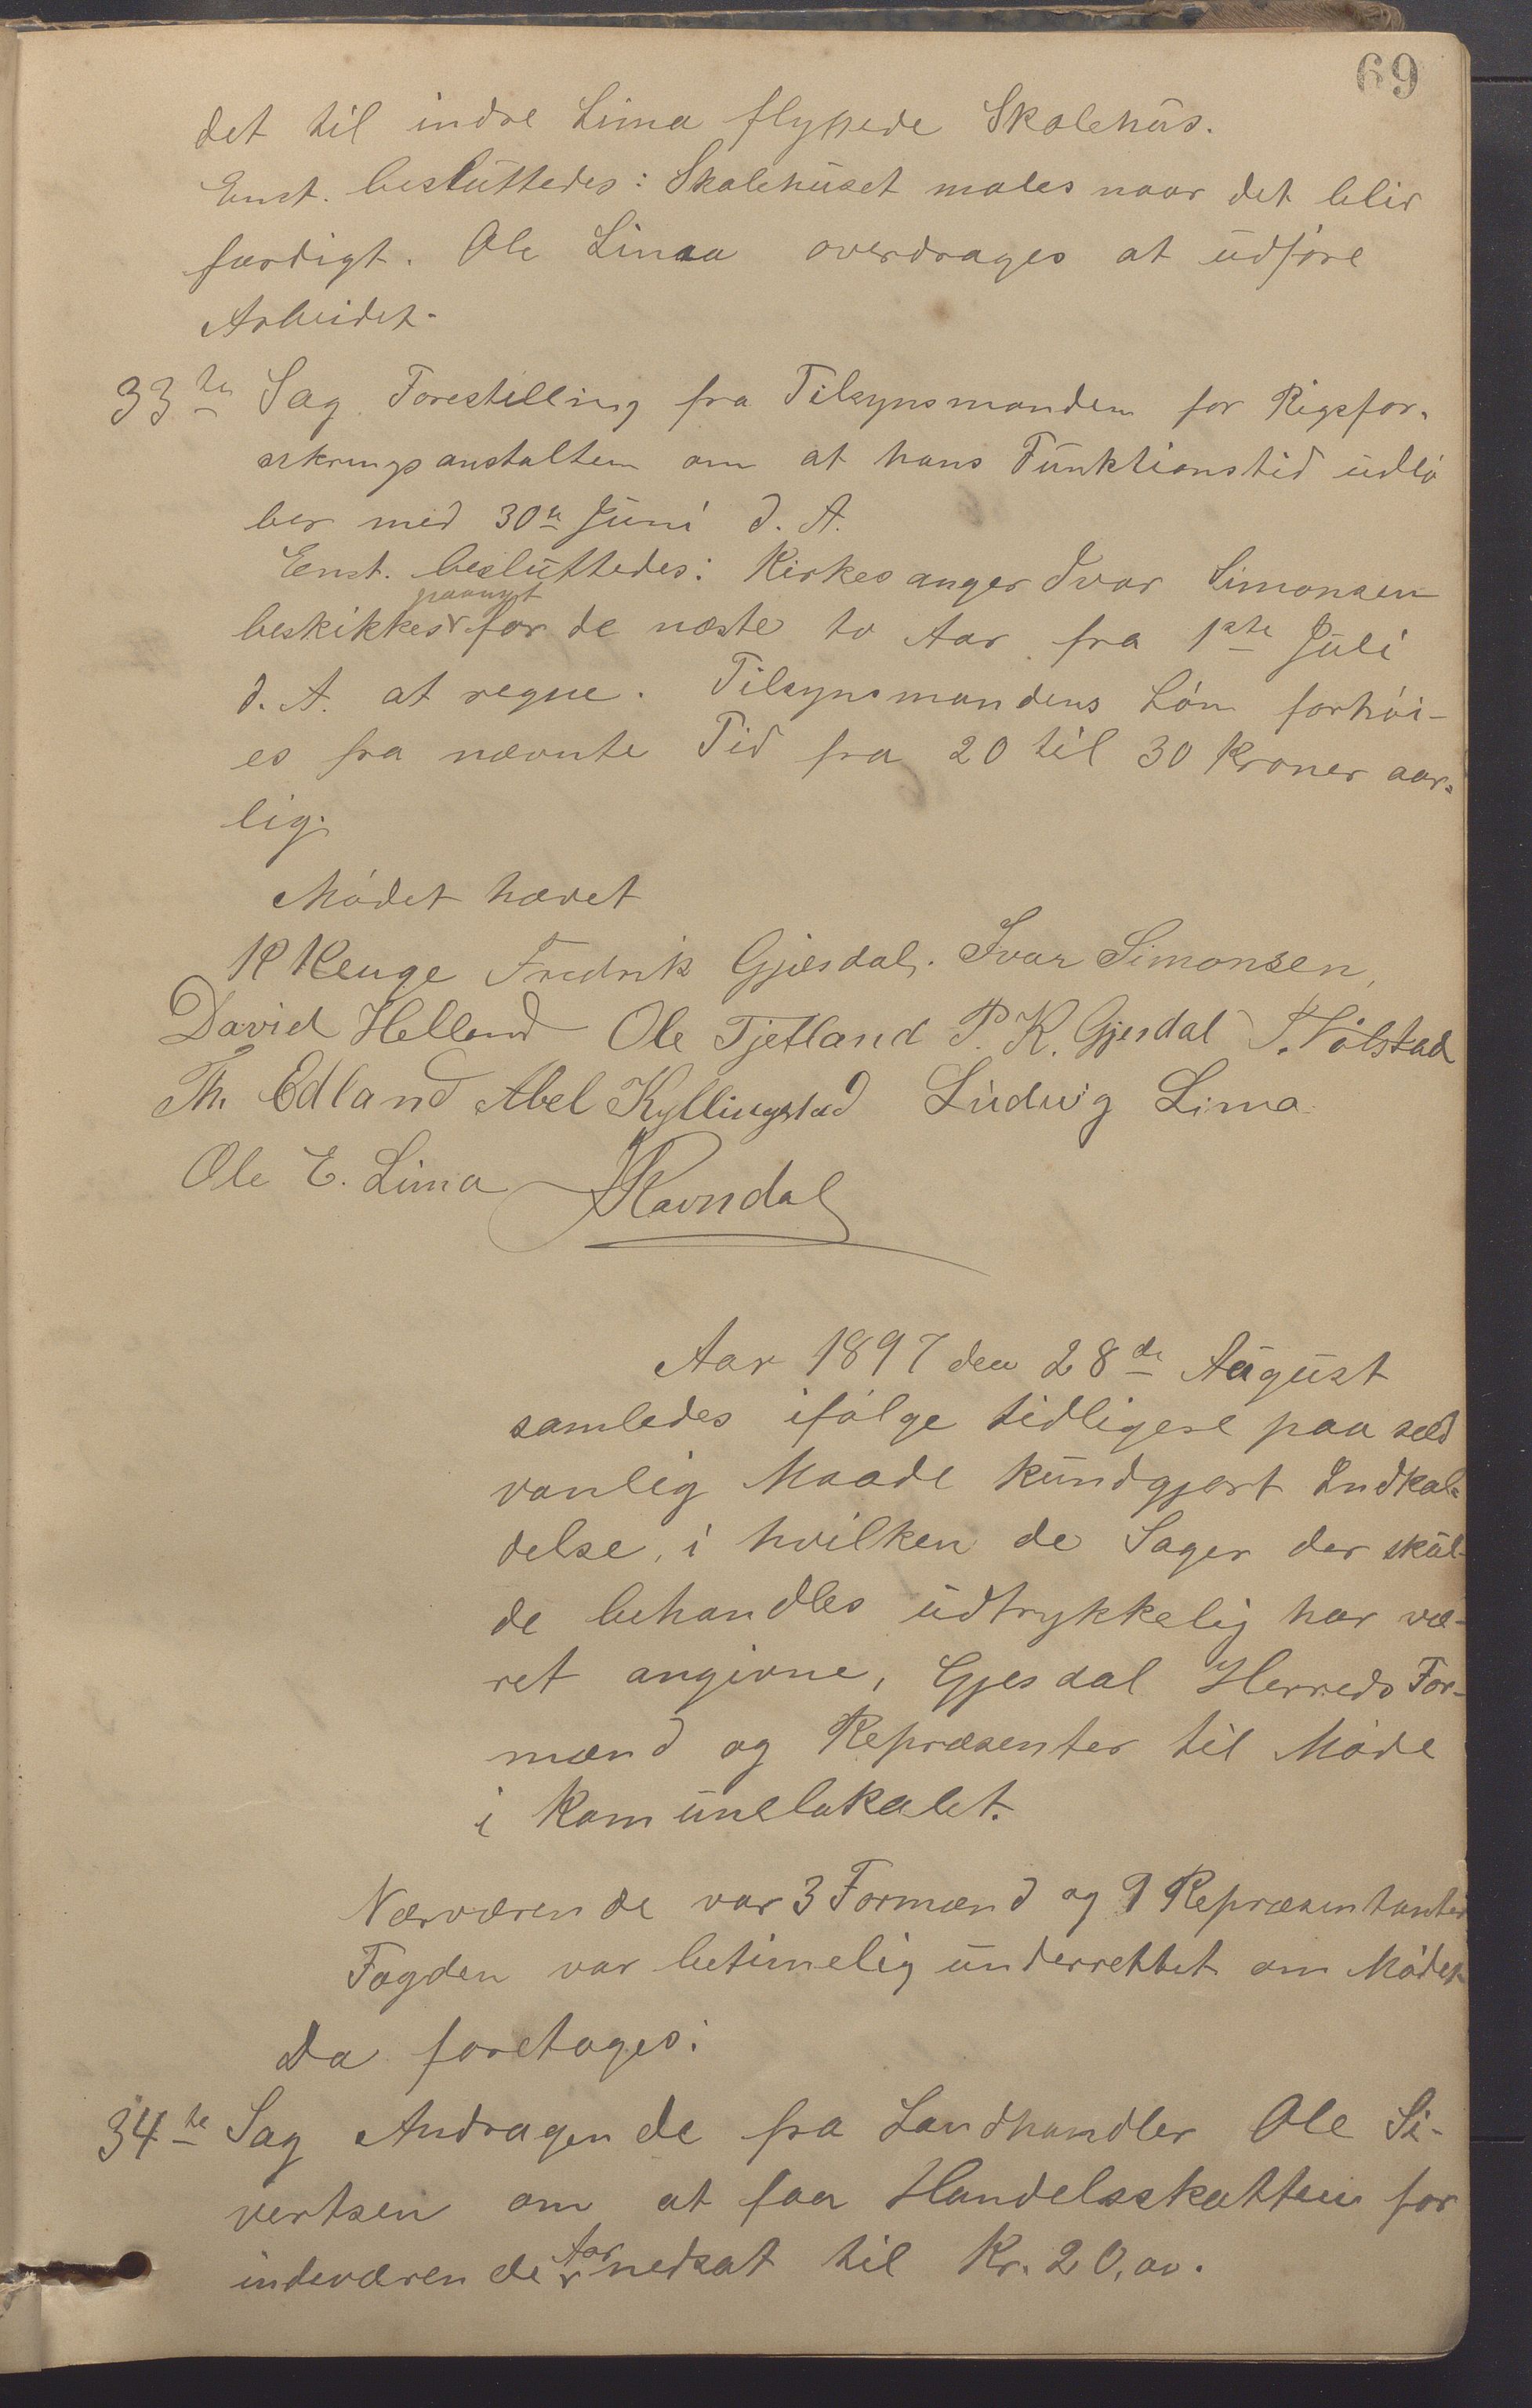 69
det til indre Lima flyttede Skolehus.
Enst. besluttedes: Skolehuset males naar det blir
færdigt. Ole Limaa overdrages at udføre
Arbeidet.
33te Sag. Forestilling fra Tilsynsmanden for Rigsfor-
sikringsanstalten om at hans Funktionstid udlø
ber med 30te Juni d. A.
Enst. besluttedes: Kirkesanger Ivar Simonsen
paanyt
beskikkes for de næste to Aar fra 1ste Juli
d. A. at regne. Tilsynsmandens Løn forhøi-
es fra nævnte Tid fra 20 til 30 Kroner aar-
lig.
Mødet hævet
K Kenge Fredrik Gjesdal. Ivar Simonsen,
David Helland Ole Tjetland P. K. Gjesdal T. Nålstad
Th. Edland Abel Kyllingstad Ludvig Lima
Ole E. Lima Ravndal
Aar 1897 den 28de August
samledes ifølge tidligere paa sæd
vanlig Maade kundgjort Indkal-
delse, i hvilken de Sager der skul-
de behandles udtrykkelig har væ-
ret angivne, Gjesdal Herreds For-
mænd og Repræsenter til Møde
i Komunelokalet.
Nærværende var 3 Formænd og 9 Repræsentanter
Fogden var betimelig underrettet om Mødet
Da foretoges:
34te Sag Andragende fra Landhandler Ole Si-
vertsen om at faa Handelsskatten for
indeværende Aar nedsat til Kr. 20,00.